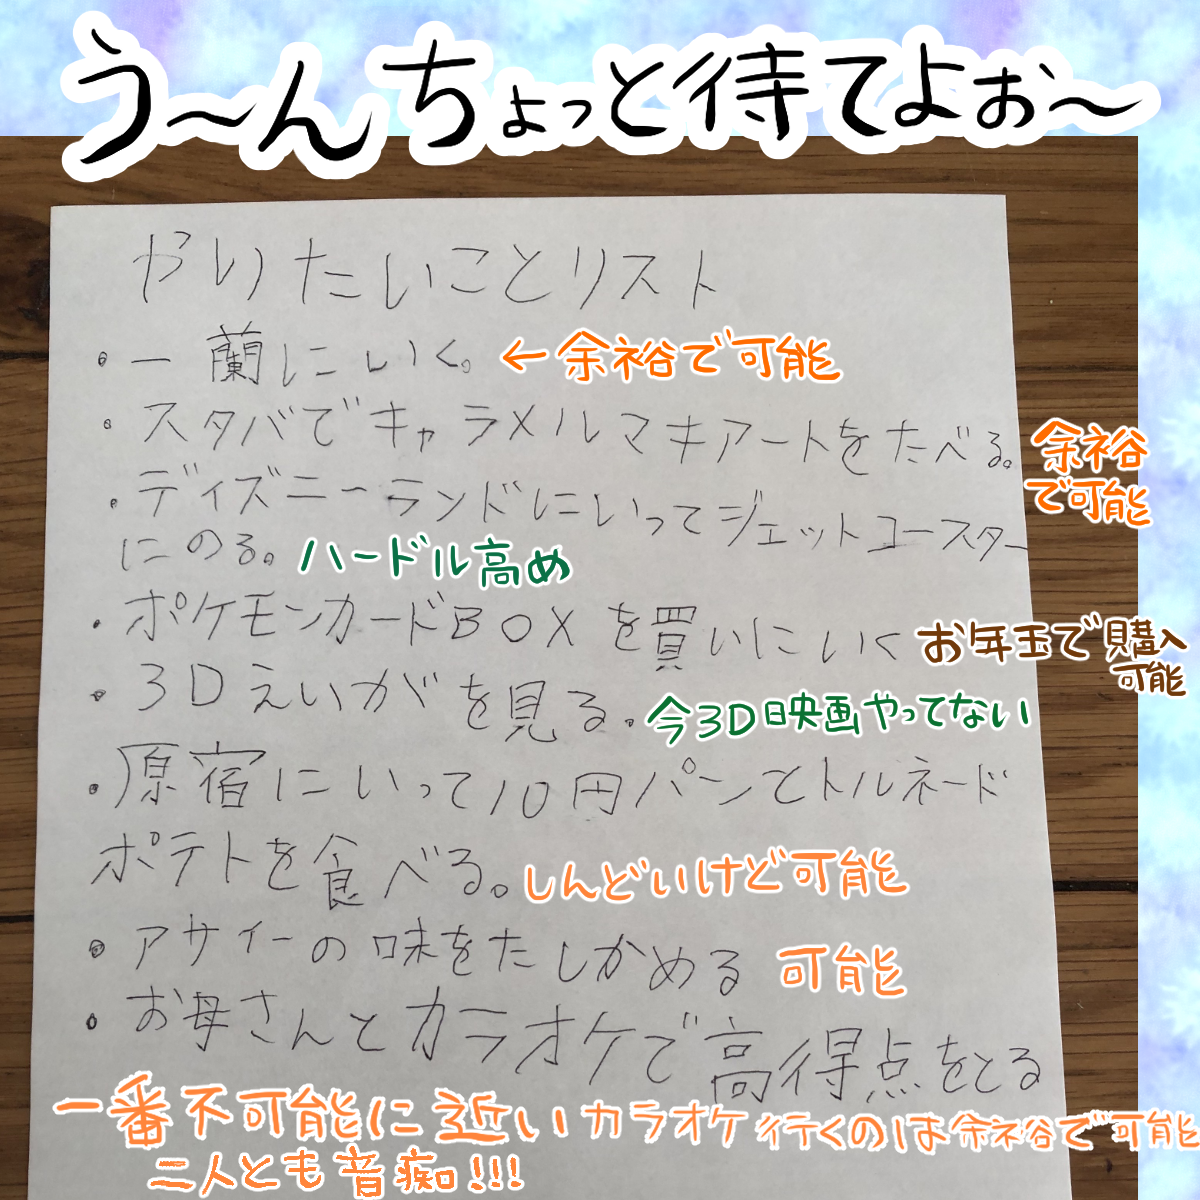 う〜んちょっと待てよぉ〜
やりたいことリスト
・一蘭にいく。←余裕で可能
・スタバでキャラメルマキアートをたべる。余裕
で可能
・ディズニーランドにいってジェットコースター
にのる。ハードル高め
・ポケモンカードBOXを買いにいくお年玉で購入
可能
・3Dえいがを見る。今3D映画やってない
・原宿にいって10円パンとトルネード
ポテトを食べる。しんどいけど可能
・アサイーの味をたしかめる 可能
・お母さんとカラオケで高得点をとる
一番不可能に近いカラオケ行くのは余裕で可能
二人とも音痴!!!